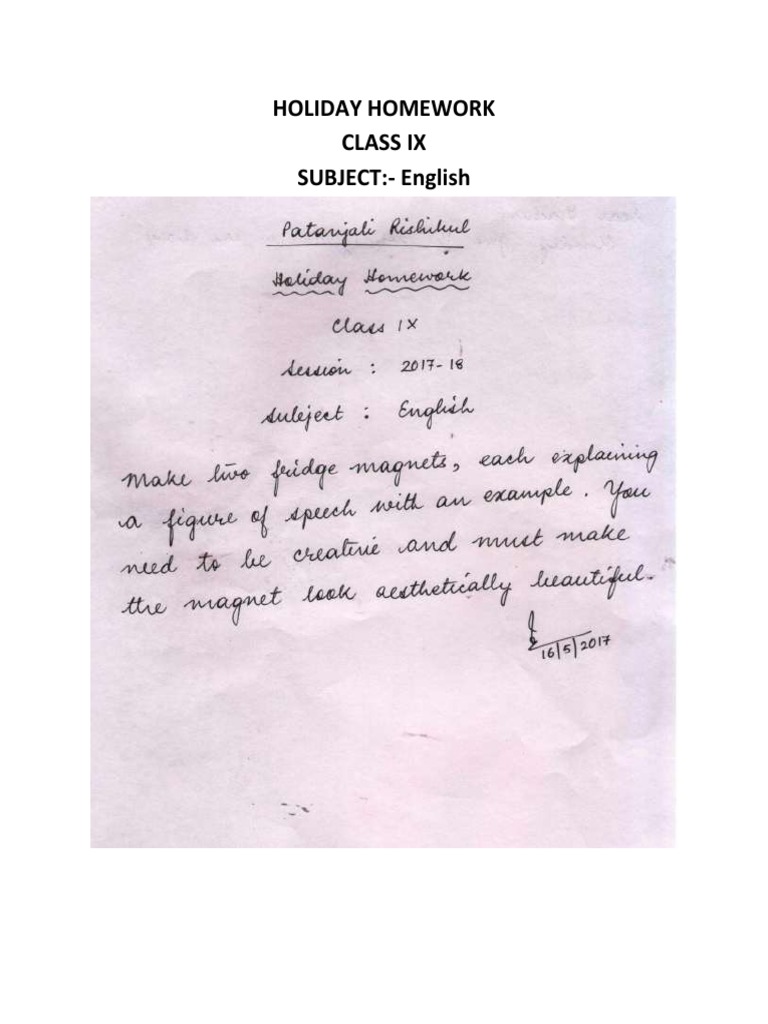 HOLIDAY HOMEWORK
CLASS IX
SUBJECT:- English
Patanjali Rishikul
Holiday Homework
Class IX
Session : 2017-18
Subject : English
Make two fridge magnets, each explaining
a figure of speech with an example. You
need to be creative and must make
the magnet look aesthetically beautiful.
16/5/2017